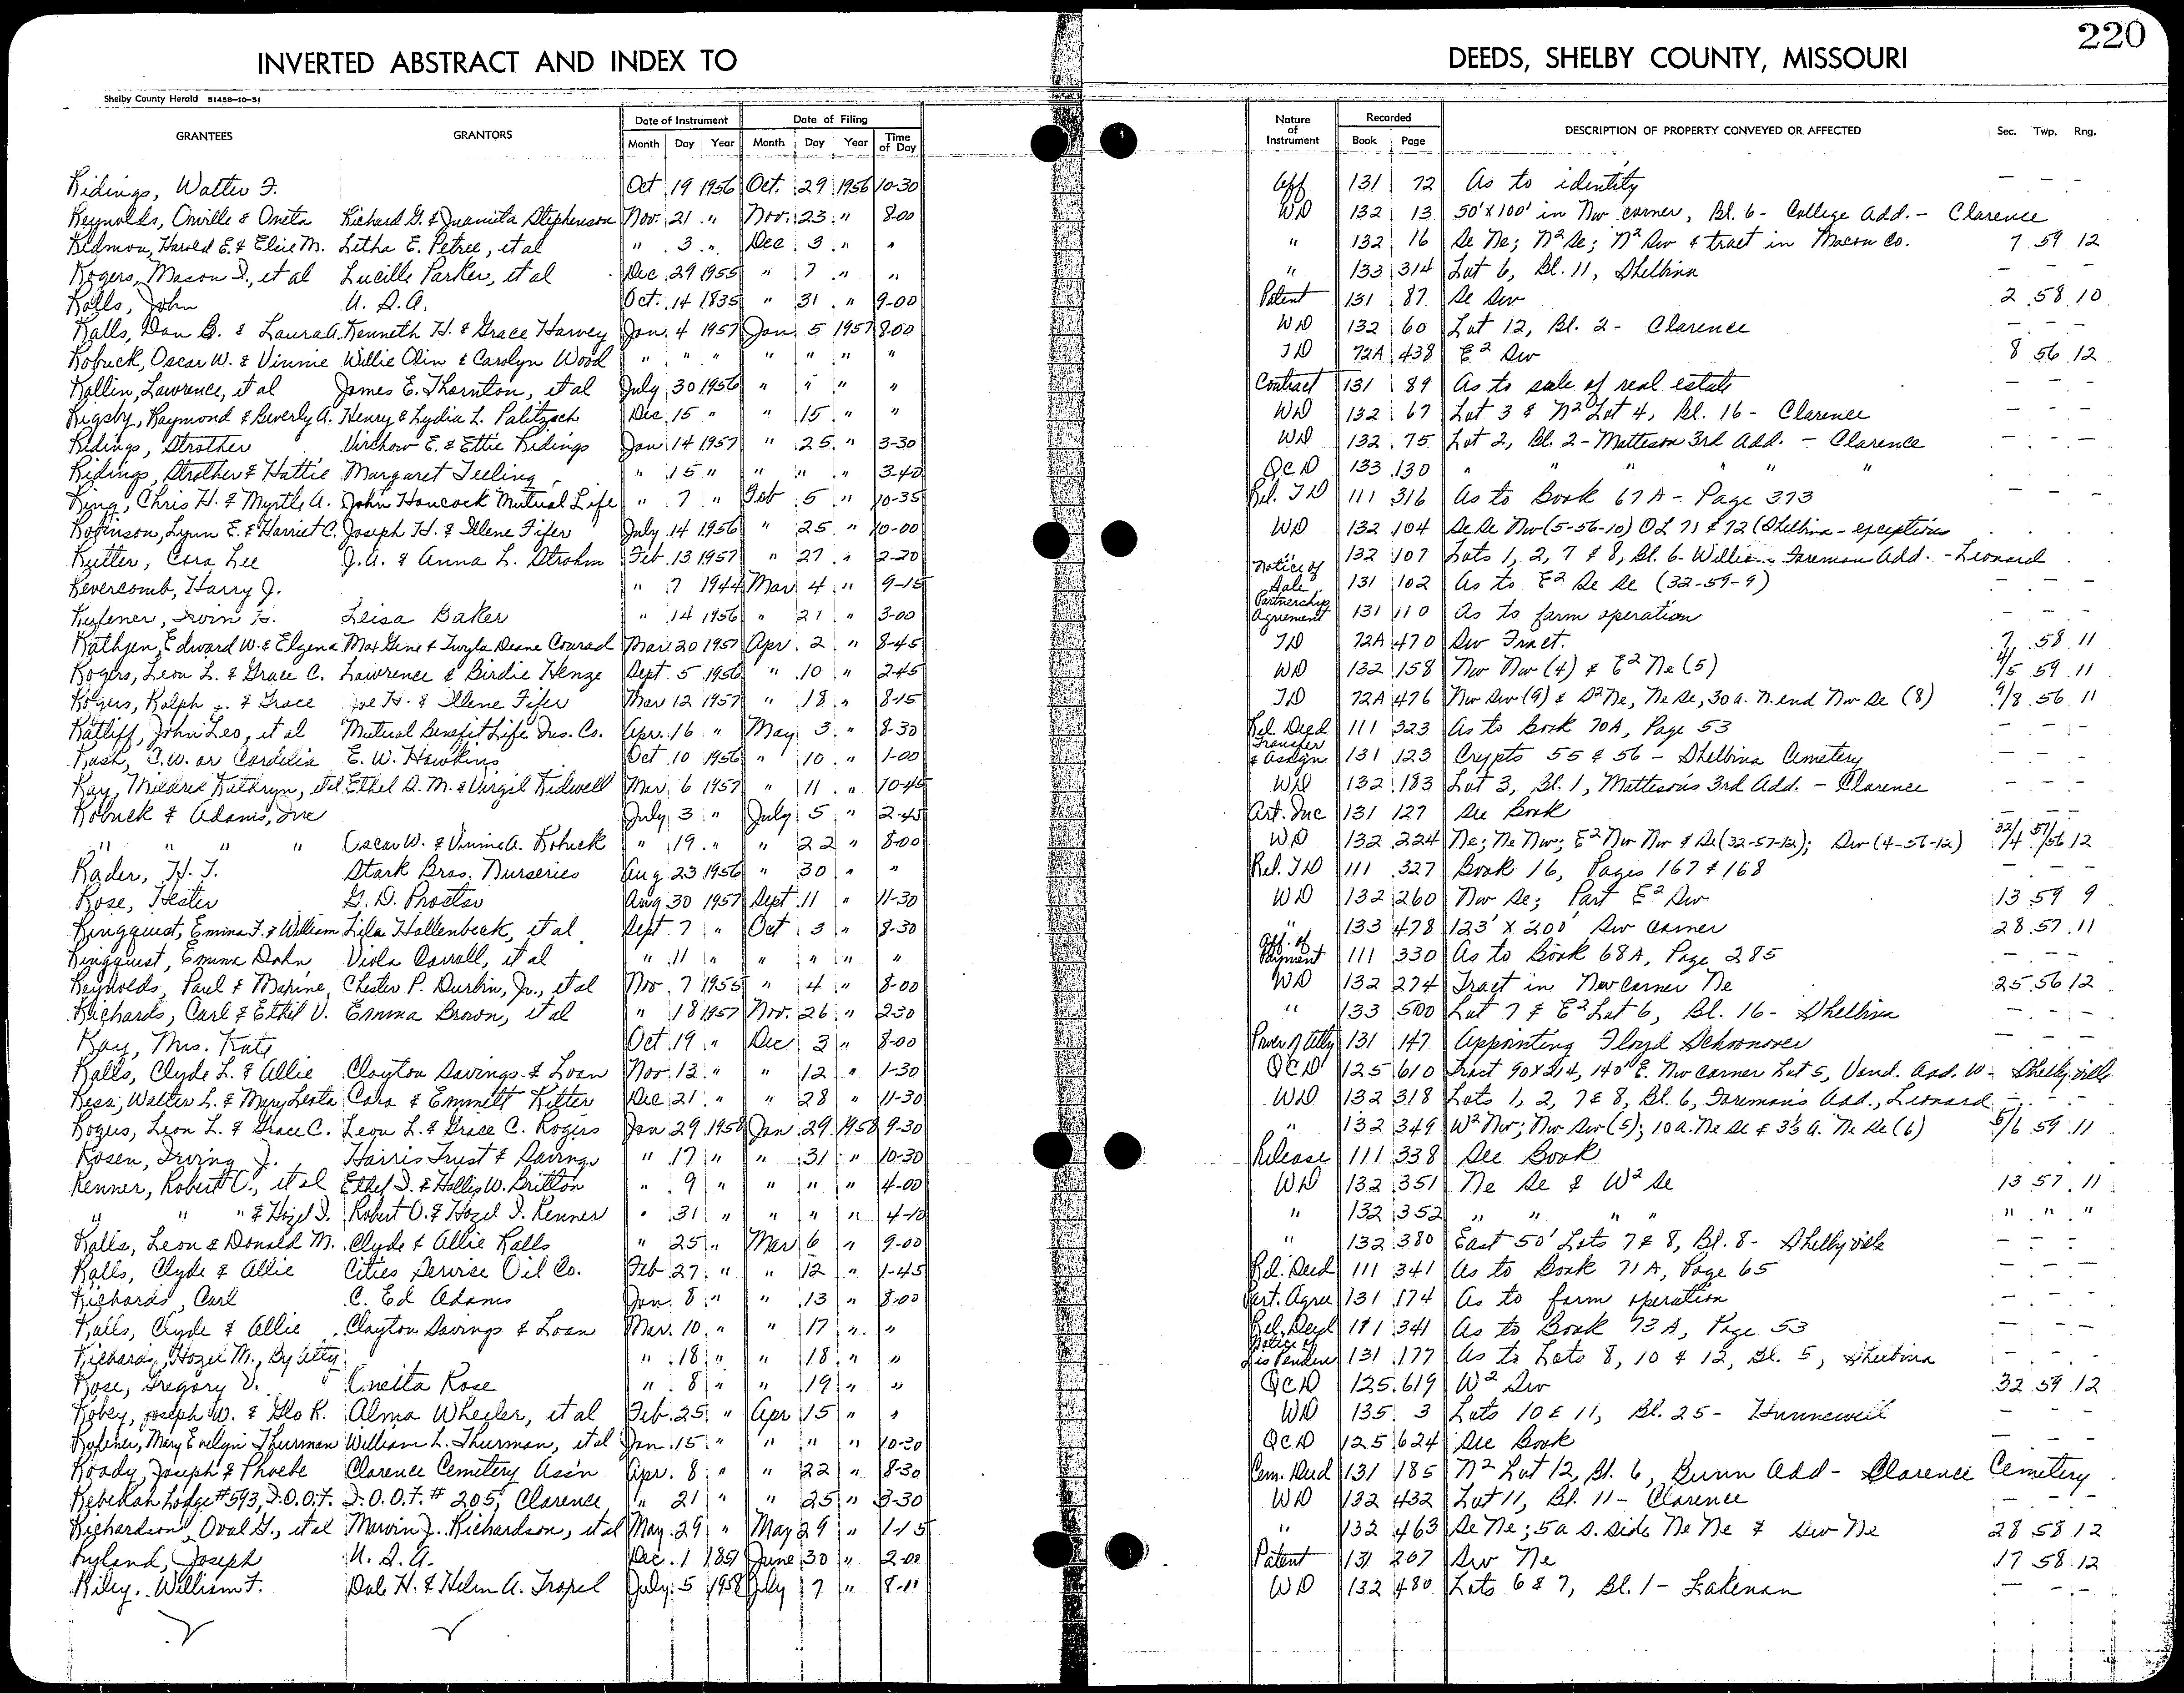 220
INVERTED ABSTRACT AND INDEX TO DEEDS, SHELBY COUNTY, MISSOURI
Shelby County Herald 51458-10-51
GRANTEES GRANTORS Date of Instrument Date of Filing Nature of Instrument Recorded DESCRIPTION OF PROPERTY CONVEYED OR AFFECTED Sec. Twp. Rng.
Month Day Year Month Day Year Time of Day Book Page
Ridings, Walter F. Oct 19 1956 Oct. 29 1956 10-30 Aff 131 72 As to identity — - -
Reynolds, Orville & Oneta Richard G. & Juanita Stephenson Nov. 21 " Nov. 23 " 8-00 WD 132 13 50' x 100' in Nw corner, Bl. 6 - College Add. - Clarence
Redmon, Harold E. & Elsie M. Letha E. Petree, et al " 3 " Dec. 3 " " " 132 16 Se Ne; N² Se; N² Sw & tract in Macon Co. 7 59 12
Rogers, Mason D., et al Lucille Parker, et al Dec 29 1955 " 7 " " " 133 314 Lot 6, Bl. 11, Shelbina — - -
Ralls, John U. S. A. Oct. 14 1835 " 31 " 9-00 Patent 131 87 Se Sw 2 58 10
Ralls, Dan B. & Laura A. Kenneth H. & Grace Harvey Jan. 4 1957 Jan. 5 1957 8-00 WD 132 60 Lot 12, Bl. 2 - Clarence — - -
Robuck, Oscar W. & Vinnie Willie Olin & Carolyn Wood " " " " " " " TD 72A 438 E² Sw 8 56 12
Rollin, Lawrence, et al James E. Thornton, et al July 30 1956 " " " " Contract 131 89 As to sale of real estate — - -
Rigsby, Raymond & Beverly A. Henry & Lydia L. Palitzsch Dec. 15 " " 15 " " WD 132 67 Lot 3 & N² Lot 4, Bl. 16 - Clarence — - -
Ridings, Strother Virchow E. & Ettie Ridings Jan 14 1957 " 25 " 3-30 WD 132 75 Lot 2, Bl. 2 - Matteson 3rd Add. - Clarence — - -
Ridings, Strother & Hattie Margaret Teeling " 15 " " " " 3-40 QCD 133 130 " " " " " "
Ring, Chris H. & Myrtle A. John Hancock Mutual Life " 7 " Feb 5 " 10-35 Rel. TD 111 316 As to Book 67A - Page 373 — - -
Robinson, Lynn E. & Harriet C. Joseph H. & Ilene Fifer July 14 1956 " 25 " 10-00 WD 132 104 Se Se Nw (5-56-10) OL 71 & 72 (Shelbina - exceptions
Rutter, Cora Lee J. A. & Anna L. Strohm Feb. 13 1957 " 27 " 2-20 132 107 Lots 1, 2, 7 & 8, Bl. 6 - William Foreman Add. - Leonard
Revercomb, Harry J. " 7 1944 Mar. 4 " 9-15 Notice of Sale 131 102 As to E² Se Se (32-59-9) — - -
Rufener, Irvin Leisa Baker " 14 1956 " 21 " 3-00 Partnership Agreement 131 110 As to farm operation — - -
Rathjen, Edward W. & Elgena Max Gene & Twyla Deane Conrad Mar. 20 1957 Apr. 2 " 8-45 TD 72A 470 Sw Fract. 7 58 11
Rogers, Leon L. & Grace C. Lawrence & Birdie Henze Sept. 5 1956 " 10 " 2-45 WD 132 158 Nw Nw (4) & E² Ne (5) 4/5 59 11
Rogers, Ralph J. & Grace Joe H. & Ilene Fifer Mar 12 1957 " 18 " 8-15 TD 72A 476 Nw Sw (9) & S² Ne, Ne Se, 30 a. N. end Nw Se (8) 9/8 56 11
Ratliff, John Leo, et al Mutual Benefit Life Ins. Co. Apr. 16 " May 3 " 8-30 Rel. Deed 111 323 As to Book 70A, Page 53 — - -
Rash, C. W. or Cordelia E. W. Hawkins Oct 10 1956 " 10 " 1-00 Transfer & Assign 131 123 Crypts 55 & 56 - Shelbina Cemetery
Ray, Mildred Kathryn, et al Ethel D. M. & Virgil Kidwell Mar 6 1957 " 11 " 10-45 WD 132 183 Lot 3, Bl. 1, Matteson's 3rd Add. - Clarence — - -
Robuck & Adams, Inc July 3 " July 5 " 2-45 Art. Inc 131 127 See Book — - -
" " " " Oscar W. & Vinnie A. Robuck " 19 " " 22 " 8-00 WD 132 224 Ne; Ne Nw; E² Nw Nw & Se (32-57-12); Sw (4-56-12) 32/4 57/56 12
Rader, H. T. Stark Bros. Nurseries Aug 23 1956 " 30 " " Rel. TD 111 327 Book 16, Pages 167 & 168 — - -
Rose, Hester G. D. Proctor Aug 30 1957 Sept. 11 " 11-30 WD 132 260 Nw Se; Part E² Sw 13 59 9
Ringquist, Emma F. & William Lila Hollenbeck, et al Sept. 7 " Oct 3 " 8-30 " 133 478 123' x 200' Sw corner 28 57 11
Ringquist, Emma Dohn Viola Carroll, et al " 11 " " " " " Aff. of Payment 111 330 As to Book 68A, Page 285 — - -
Reynolds, Paul & Maxine Chester P. Durbin, Jr., et al Nov. 7 1955 " 4 " 8-00 WD 132 274 Tract in Nw corner Ne 25 56 12
Richards, Carl & Ethel V. Emma Brown, et al " 18 1957 Nov. 26 " 2-30 " 133 500 Lot 7 & E² Lot 6, Bl. 16 - Shelbina — - -
Ray, Mrs. Kate Oct 19 " Dec 3 " 8-00 Power of Atty 131 147 Appointing Floyd Schoonover — - -
Ralls, Clyde L. & Allie Clayton Savings & Loan Nov. 13 " " 12 " 1-30 QCD 125 610 Tract 90 x 214, 140' E. Nw corner Lot 5, Vand. Add. W - Shelbyville
Walter L. & Mary Leota Cora & Emmett Ritter Dec 21 " " 28 " 11-30 WD 132 318 Lots 1, 2, 7 & 8, Bl. 6, Foreman's Add., Leonard — - -
Rogers, Leon L. & Grace C. Leon L. & Grace C. Rogers Jan 29 1958 Jan. 29 1958 9-30 " 132 349 W² Nw; Nw Sw (5); 10 a. Ne Se & 3⅓ a. Ne Se (6) 5/6 59 11
Rosen, Irving J. Harris Trust & Savings " 17 " " 31 " 10-30 Release 111 338 See Book — - -
Renner, Robert O., et al Ethel D. & Hollis W. Britton " 9 " " " " 4-00 WD 132 351 Ne Se & W² Se 13 57 11
" " " & Hazel I. Robert O. & Hazel I. Renner " 31 " " " " 4-10 " 132 352 " " " " " " "
Ralls, Leon & Donald M. Clyde & Allie Ralls " 25 " Mar 6 " 9-00 " 132 380 East 50' Lots 7 & 8, Bl. 8 - Shelbyville — - -
Ralls, Clyde & Allie Cities Service Oil Co. Feb 27 " " 12 " 1-45 Rel. Deed 111 341 As to Book 71A, Page 65 — - -
Richards, Carl C. Ed Adams Jan. 8 " " 13 " 8-00 Part. Agree 131 174 As to farm operation — - -
Ralls, Clyde & Allie Clayton Savings & Loan Mar. 10 " " 17 " " Rel. Deed 111 341 As to Book 73A, Page 53 — - -
Richards, Hazel M., By Atty " 18 " " 18 " " Notice of Lis Pendens 131 177 As to Lots 8, 10 & 12, Bl. 5, Shelbina — - -
Rose, Gregory V. Oneita Rose " 8 " " 19 " " QCD 125 619 W² Sw 32 59 12
Robey, Joseph W. & Glo R. Alma Wheeler, et al Feb 25 " Apr 15 " " WD 135 3 Lots 10 & 11, Bl. 25 - Hunnewell — - -
Rufener, Mary Evelyn Thurman William L. Thurman, et al Jan 15 " " " " 10-30 QCD 125 624 See Book — - -
Roady, Joseph & Phoebe Clarence Cemetery Ass'n Apr. 8 " " 22 " 8-30 Cem. Deed 131 185 N² Lot 12, Bl. 6, Bunn Add - Clarence Cemetery
Rebekah Lodge #593, I.O.O.F. I.O.O.F. # 205, Clarence " 21 " " 25 " 3-30 WD 132 432 Lot 11, Bl. 11 - Clarence — - -
Richardson, Oval G., et al Marvin J. Richardson, et al May 29 " May 29 " 1-15 " 132 463 Se Ne; 5 a S. side Ne Ne & Sw Ne 28 58 12
Ryland, Joseph U. S. A. Dec 1 1851 June 30 " 2-00 Patent 131 207 Sw Ne 17 58 12
Riley, William F. Dale H. & Helen A. Tropel July 5 1958 July 7 " 8-11 WD 132 480 Lots 6 & 7, Bl. 1 - Lakenan — - -